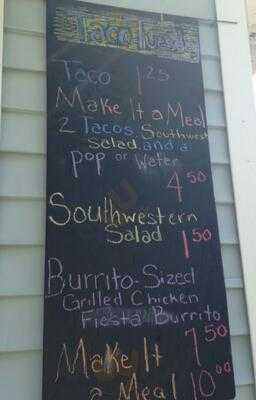 Taco Tuesday
Taco 1.25
Make It a Meal
2 Tacos, Southwest
Salad, and a
Pop or Water
4.50
Southwestern
Salad 1.50
Burrito-Sized
Grilled Chicken
Fiesta Burrito
7.50
Make It
a Meal 10.00